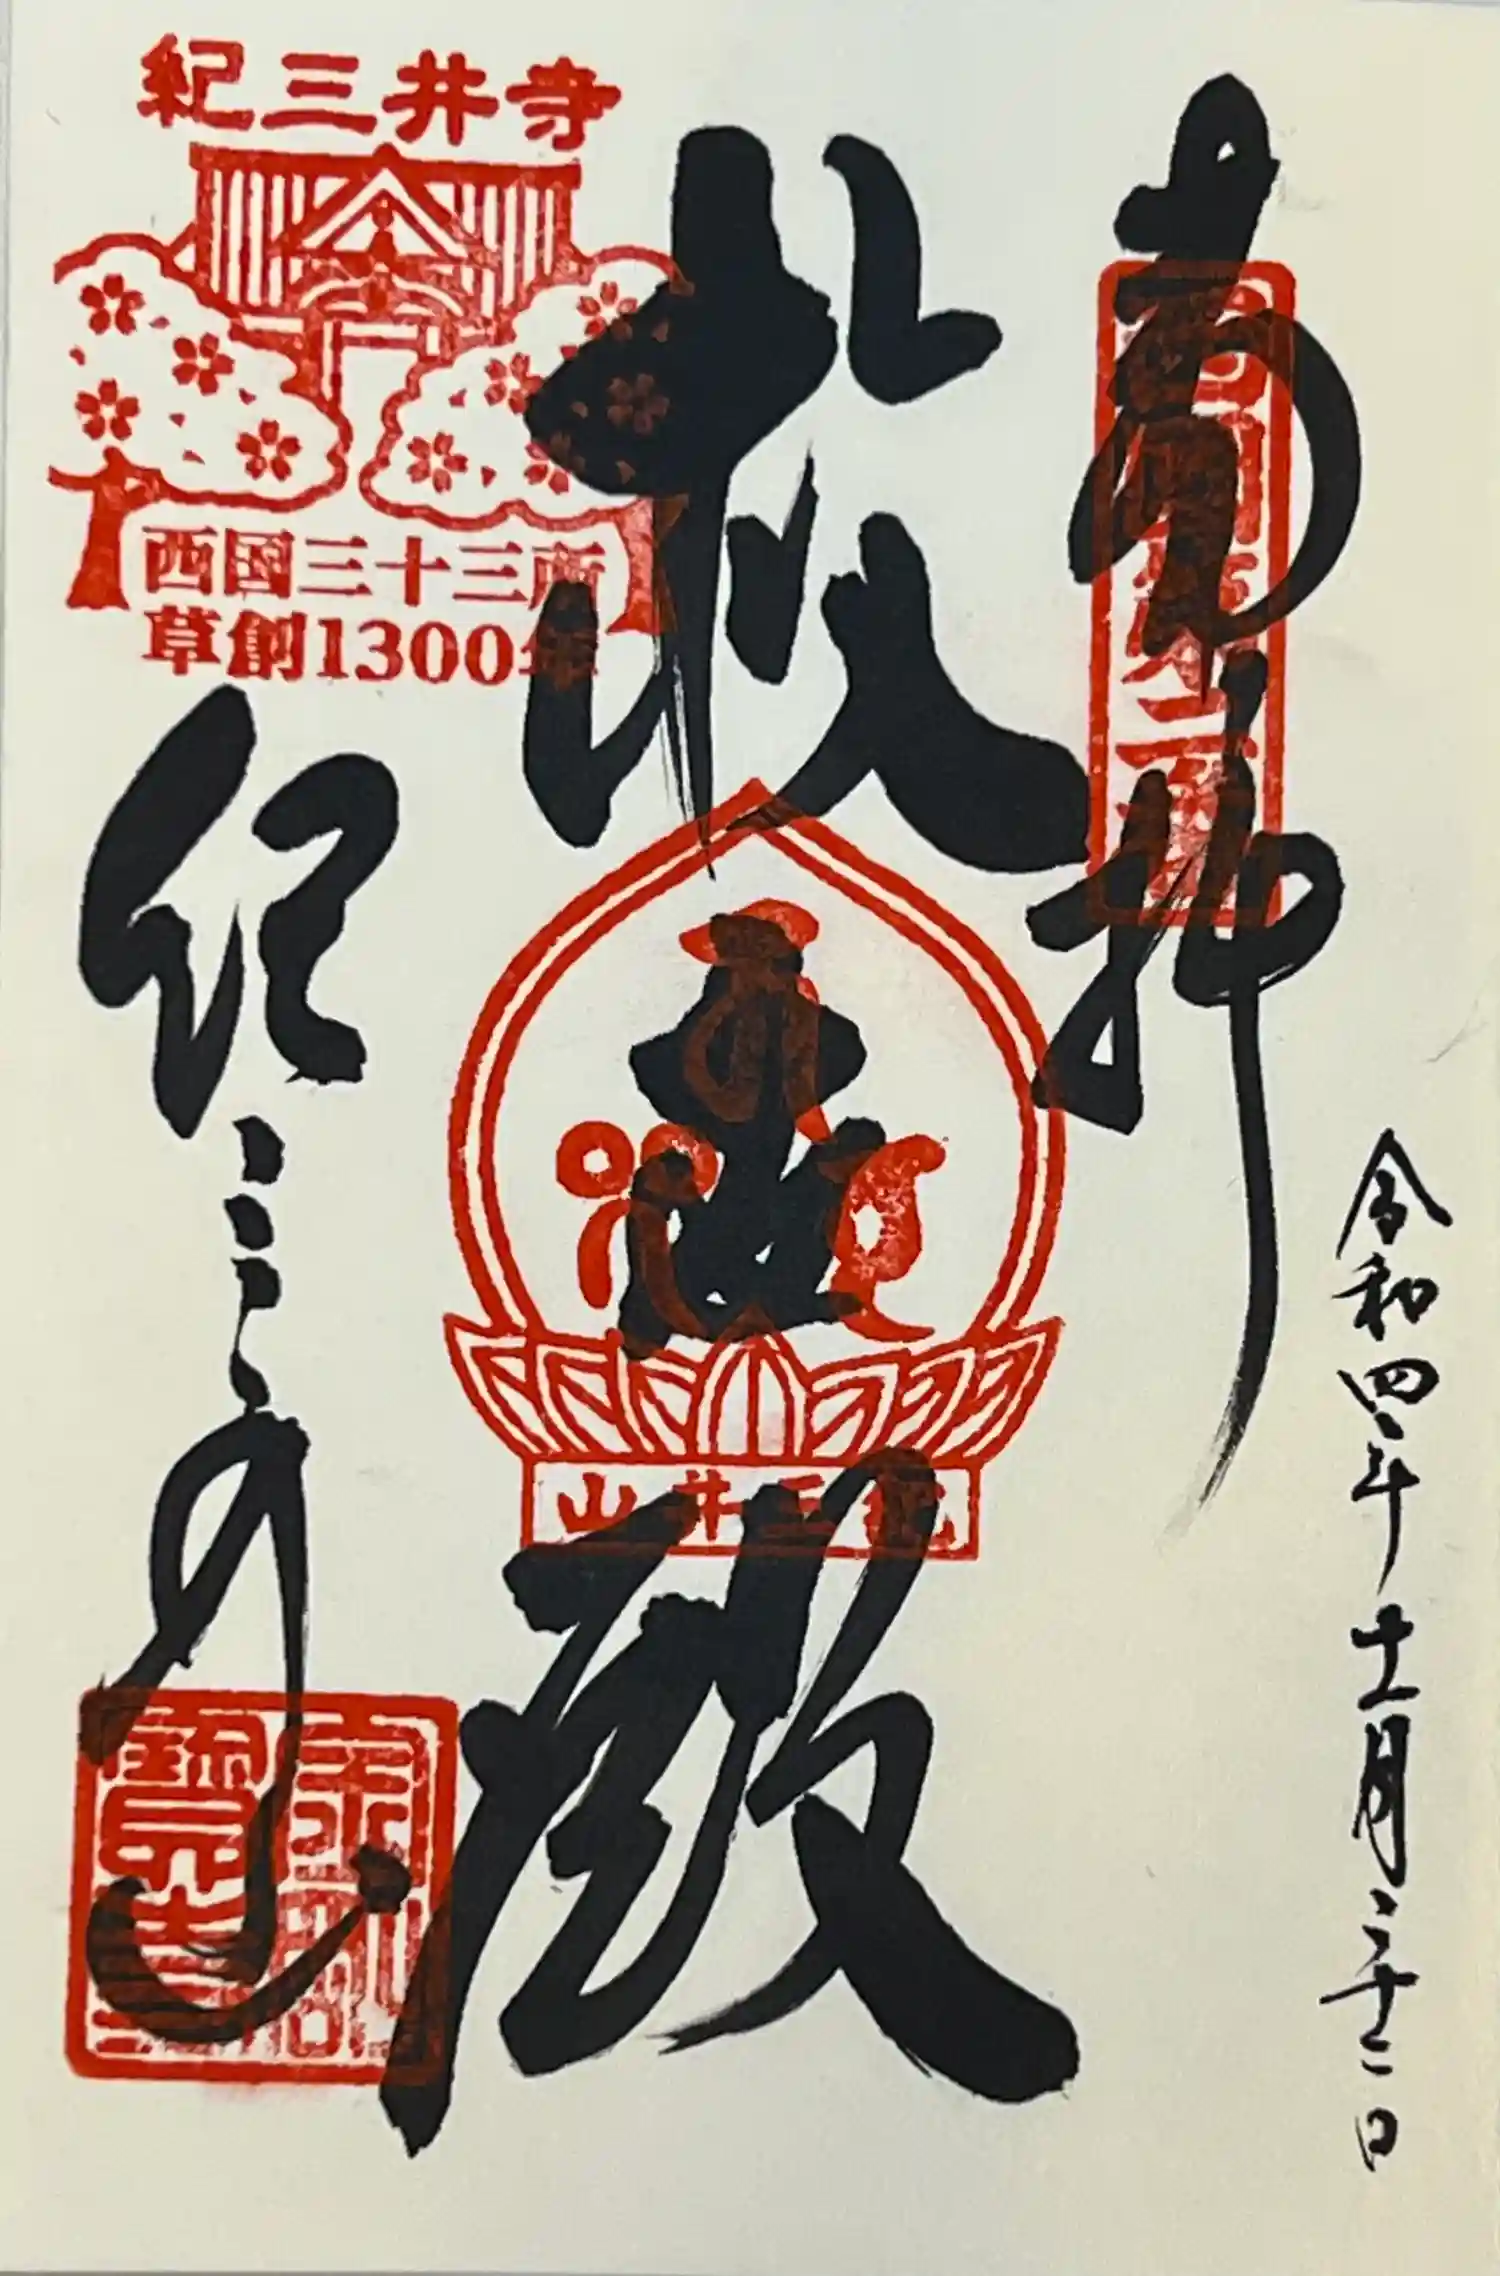 奉拝
西国第二番
令和四年十一月二十二日
救世殿
紀三井山
紀三井寺
西国三十三所
草創1300年
紀三井寺